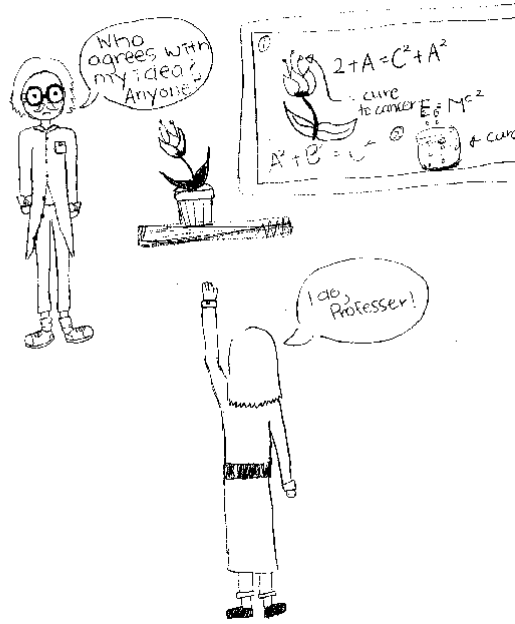 Who
agrees with
my idea?
Anyone?
①
2+A=C²+A²
cure
to cancer
E=Mc²
②
A²+B²=C²
cure
I do,
Professer!